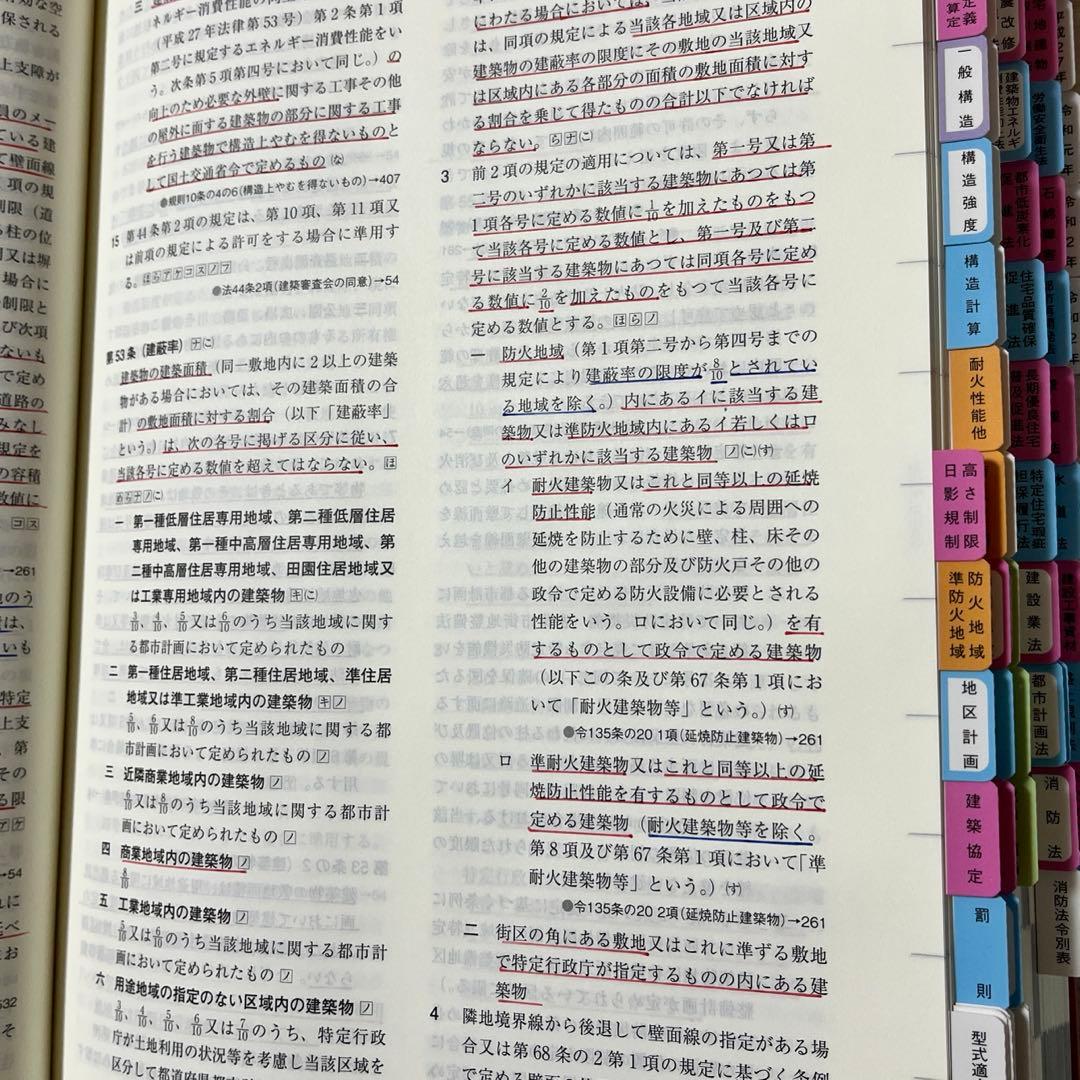 三
ネルギー消費性能の向上
(平成27年法律第53号)第2条第1項
第二号に規定するエネルギー消費性能をい
う。次条第5項第四号において同じ。)の
向上のため必要な外壁に関する工事その他
の屋外に面する建築物の部分に関する工事
を行う建築物で構造上やむを得ないものと
して国土交通省令で定めるもの(な)
●規則10条の4の6(構造上やむを得ないもの)→407
15 第44条第2項の規定は、第10項、第11項又
は前項の規定による許可をする場合に準用す
る。ほらアケコスノフ
●法44条2項(建築審査会の同意)→54
第53条(建蔽率)ナに
建築物の建築面積(同一敷地内に2以上の建築
物がある場合においては、その建築面積の合
計)の敷地面積に対する割合(以下「建蔽率」
という。)は、次の各号に掲げる区分に従い、
当該各号に定める数値を超えてはならない。ほ
一 第一種低層住居専用地域、第二種低層住居
専用地域、第一種中高層住居専用地域、第
二種中高層住居専用地域、田園住居地域又
は工業専用地域内の建築物 キ(こ)
3/10、4/10、5/10又は6/10のうち当該地域に関す
る都市計画において定められたもの
二 第一種住居地域、第二種住居地域、準住居
地域又は準工業地域内の建築物 キノ
5/10、6/10又は8/10のうち当該地域に関する都
市計画において定められたもの ノ
三 近隣商業地域内の建築物 ノ
6/10又は8/10のうち当該地域に関する都市計
画において定められたもの ノ
四 商業地域内の建築物 ノ
8/10
五 工業地域内の建築物 ノ
5/10又は6/10のうち当該地域に関する都市計
画において定められたもの ノ
六 用途地域の指定のない区域内の建築物 ノ
3/10、4/10、5/10、6/10又は7/10のうち、特定行政
庁が土地利用の状況等を考慮し当該区域を
区分して都道府県都市
にわたる場合においては、当該
は、同項の規定による当該各地域又は区域内の
建築物の建蔽率の限度にその敷地の当該地域又
は区域内にある各部分の面積の敷地面積に対す
る割合を乗じて得たものの合計以下でなければ
ならない。らナ(こ)
3 前2項の規定の適用については、第一号又は第
二号のいずれかに該当する建築物にあつては第
1項各号に定める数値に1/10を加えたものをもつ
て当該各号に定める数値とし、第一号及び第二
号に該当する建築物にあつては同項各号に定め
る数値に2/10を加えたものをもつて当該各号に
定める数値とする。ほらノ
一 防火地域(第1項第二号から第四号までの
規定により建蔽率の限度が8/10とされてい
る地域を除く。)内にあるイに該当する建
築物又は準防火地域内にあるイ若しくはロ
のいずれかに該当する建築物 ノ(こ)(す)
イ 耐火建築物又はこれと同等以上の延焼
防止性能(通常の火災による周囲への
延焼を防止するために壁、柱、床その
他の建築物の部分及び防火戸その他の
政令で定める防火設備に必要とされる
性能をいう。ロにおいて同じ。)を有
するものとして政令で定める建築物
(以下この条及び第67条第1項にお
いて「耐火建築物等」という。)(す)
●令135条の20 1項(延焼防止建築物)→261
ロ 準耐火建築物又はこれと同等以上の延
焼防止性能を有するものとして政令で
定める建築物(耐火建築物等を除く。
第8項及び第67条第1項において「準
耐火建築物等」という。)(す)
●令135条の20 2項(延焼防止建築物)→261
二 街区の角にある敷地又はこれに準ずる敷地
で特定行政庁が指定するものの内にある建
築物
4 隣地境界線から後退して壁面線の指定がある場
合又は第68条の2第1項の規定に基づく条例
一般構造
構造強度
構造計算
耐火性能他
高さ制限
日影規制
防火地域
準防火地域
地区計画
建築協定
罰則
型式適
労働安全衛生法
都市低炭素化促進法
住宅品質確保促進法
長期優良住宅普及促進法
特定住宅瑕疵担保履行法
建設業法
都市計画法
消防法
消防法令別表